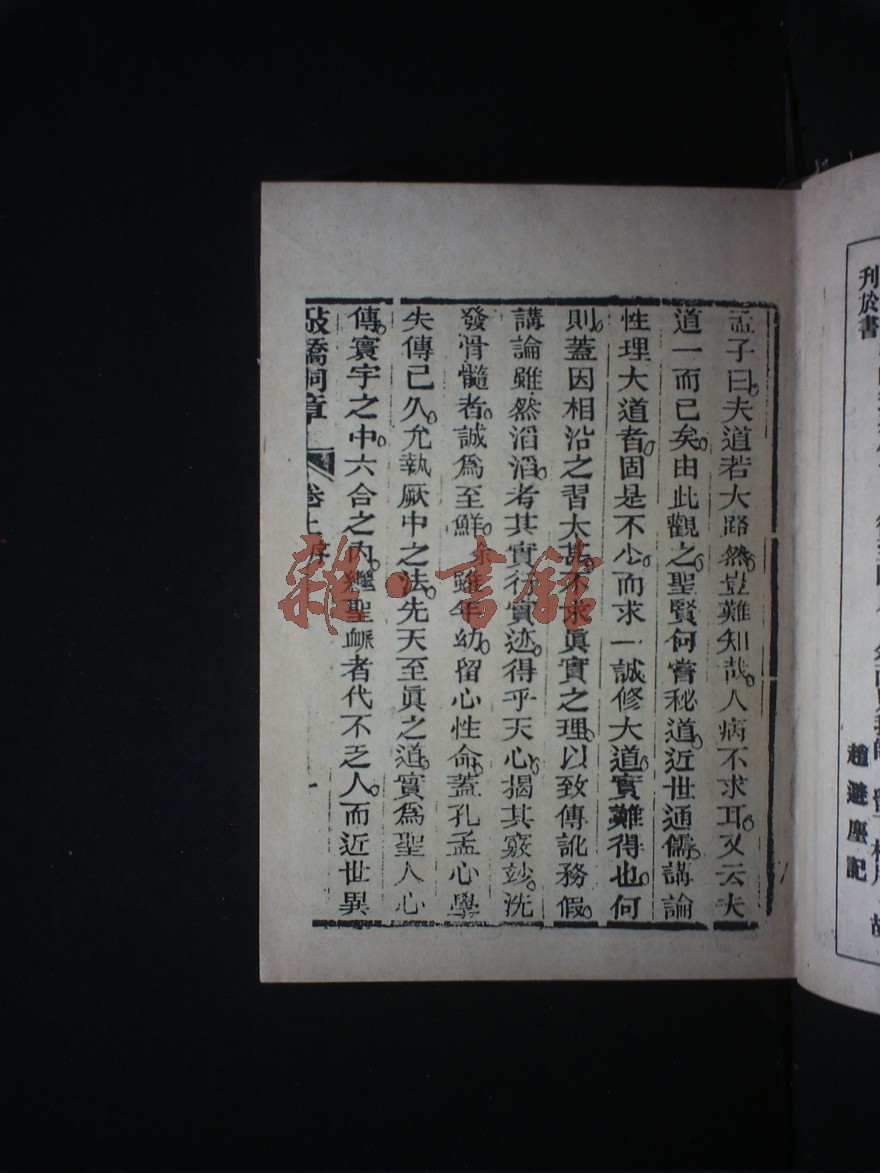 孟子曰夫道若大路然豈難知哉人病不求耳又云夫
道一而已矣由此觀之聖賢何嘗秘道近世通儒講論
性理大道者固是不少而求一誠修大道實難得也何
則蓋因相沿之習太甚不求眞實之理以致傳訛務假
講論雖然滔滔考其實行實迹得乎天心揭其竅妙洗
發骨髓者誠爲至鮮余雖年幼留心性命蓋孔孟心學
失傳已久允執厥中之法先天至眞之道實爲聖人心
傳寰宇之中六合之內繼聖脈者代不乏人而近世異
敲蹻洞章 卷上序
刊於書
趙避塵記
雜·書館